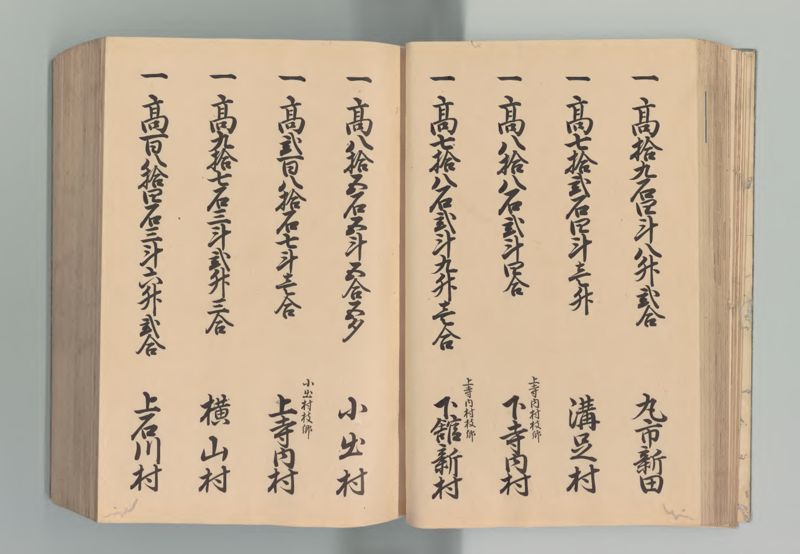 一 高拾九石四斗八升弐合 丸市新田
一 高七拾弐石四斗壱升 溝足村
一 高八拾八石弐斗四合 上寺内村枝郷 下寺内村
一 高七拾八石弐斗九升壱合 上寺内村枝郷 下舘新村
一 高八拾五石五斗五合五夕 小出村
一 高弐百八拾石七斗壱合 小出村枝郷 上寺内村
一 高九拾七石三斗弐升三合 横山村
一 高百八拾四石三斗六升弐合 上石川村